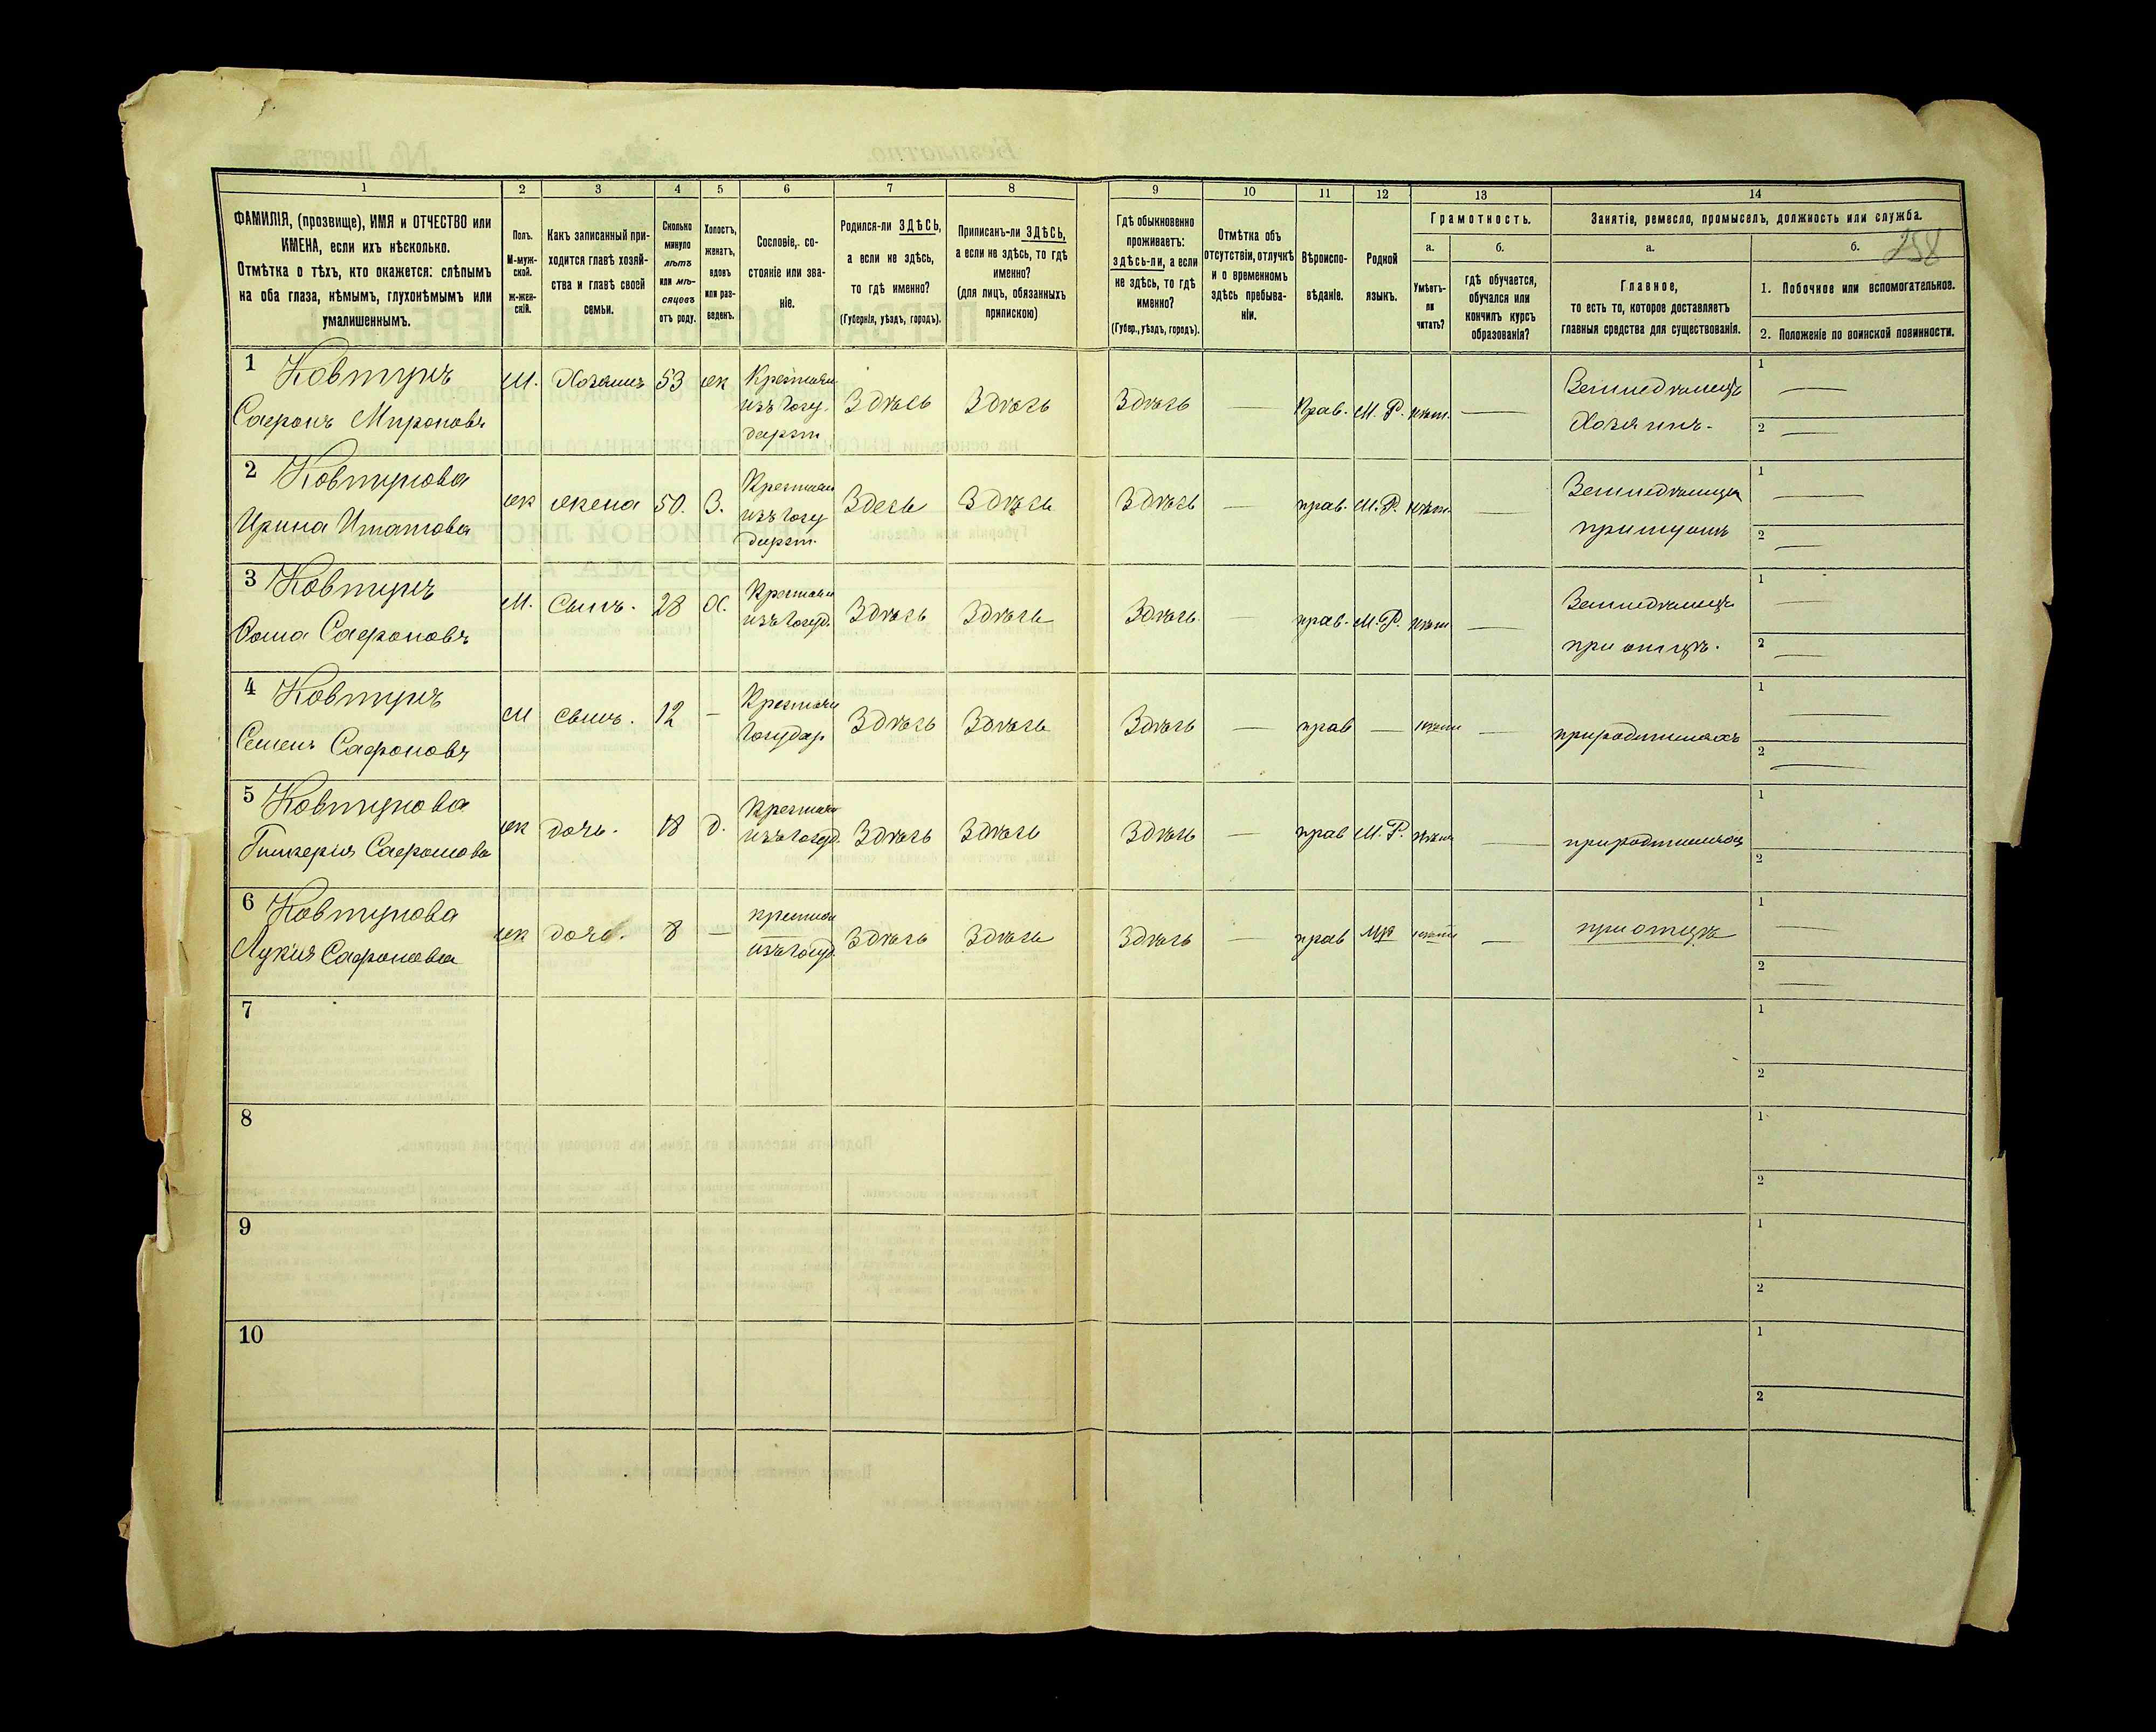 1 2 3 4 5 6 7 8 9 10 11 12 13 14
ФАМИЛІЯ, (прозвище), ИМЯ и ОТЧЕСТВО или
ИМЕНА, если ихъ нѣсколько.
Отмѣтка о тѣхъ, кто окажется: слѣпымъ
на оба глаза, нѣмымъ, глухонѣмымъ или
умалишеннымъ.
Полъ.
М-муж-
ской.
ж-жен-
скій.
Какъ записанный при-
ходится главѣ хозяй-
ства и главѣ своей
семьи.
Сколько
минуло
лѣтъ
или мѣ-
сяцевъ
отъ роду.
Холостъ,
женатъ,
вдовъ
или раз-
веденъ.
Сословіе, со-
стояніе или зва-
ніе.
Родился-ли ЗДѢСЬ,
а если не здѣсь,
то гдѣ именно?
(Губернія, уѣздъ, городъ).
Приписанъ-ли ЗДѢСЬ,
а если не здѣсь, то гдѣ
именно?
(для лицъ, обязанныхъ
припискою)
Гдѣ обыкновенно
проживаетъ:
здѣсь-ли, а если
не здѣсь, то гдѣ
именно?
(Губер., уѣздъ, городъ).
Отмѣтка объ
отсутствіи, отлучкѣ
и о временномъ
здѣсь пребыва-
ніи.
Вѣроиспо-
вѣданіе.
Родной
языкъ.
Грамотность.
а.
Умѣетъ-
ли
читать?
б.
гдѣ обучается,
обучался или
кончилъ курсъ
образованія?
Занятіе, ремесло, промыселъ, должность или служба.
а.
Главное,
то есть то, которое доставляетъ
главныя средства для существованія.
б.
258
1. Побочное или вспомогательное.
2. Положеніе по воинской повинности.
1 Ковтунъ
Сафронъ Мироновъ
М. Хозяинъ 53 ж
Крестьян
изъ Госу
дарст
Здѣсь Здѣсь Здѣсь — Прав. М. Р. нѣт. —
Земледѣлецъ
Хозяинъ.
1 —
2 —
2 Ковтунова
Ирина
ж жена 50. З.
Крестьян
изъ Госу
дарст.
Здесь Здѣсь Здѣсь — прав. М.Р. нѣт.
1 —
2 —
3 Ковтунъ
Фома Сафроновъ
М. Сынъ. 28 Х.
Крестьян
изъ Госуд.
Здѣсь Здѣсь Здѣсь — прав. М.Р. нѣт —
Земледѣлецъ
при отцѣ.
1 —
2 —
4 Ковтунъ
Семенъ Сафроновъ
М сынъ. 12 —
Крестьян
Государ
Здѣсь Здѣсь Здѣсь — прав — нѣт —
при родителяхъ
1 —
2 —
5 Ковтунова
Гликерія Сафронова
ж дочь. 18 д.
Крестьян
изъ Госуд.
Здѣсь Здѣсь Здѣсь — прав М.Р. нѣт —
1
2
6 Ковтунова
Лукія Сафронова
ж дочь. 8 —
крестьян
изъ Госуд.
Здѣсь Здѣсь Здѣсь — прав мр нѣт —
при отцѣ
1 —
2 —
7
1
2
8
1
2
9
1
2
10
1
2